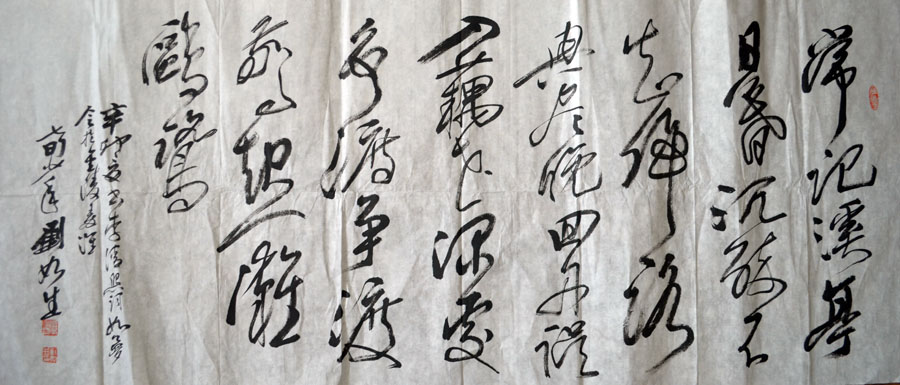 常記溪亭
日暮沉醉不
知歸路
興尽晚回舟誤
入藕花深處
争渡争渡
驚起一灘
鷗鷺
辛卯夏书李清照詞如夢
令於
劉如生